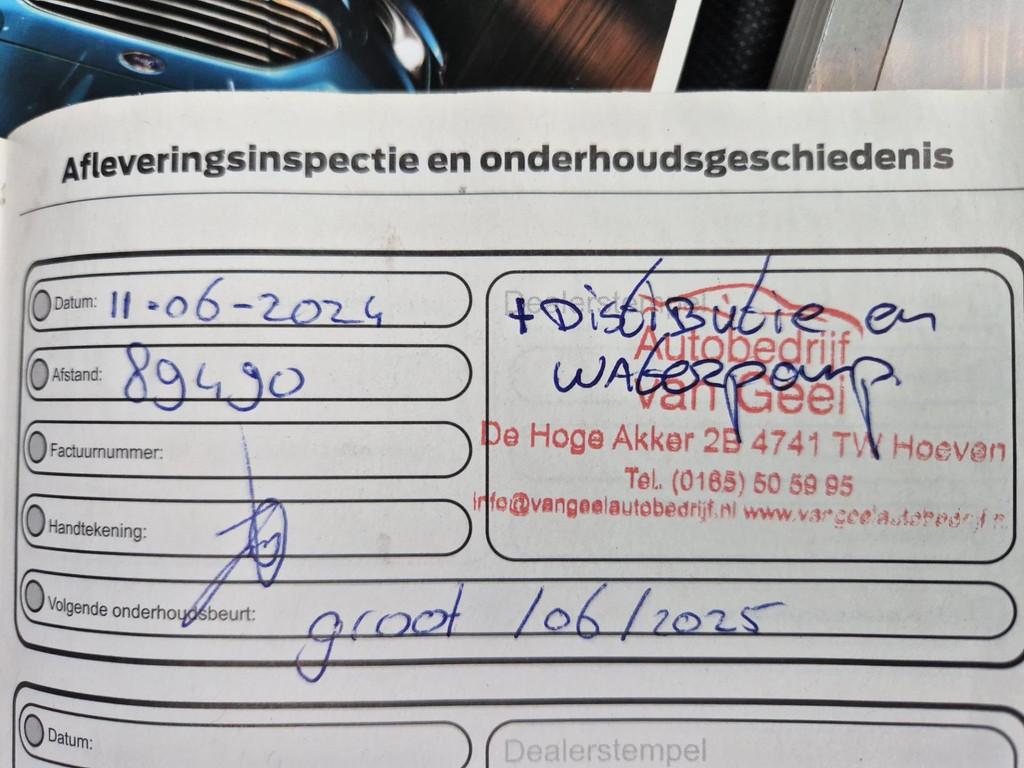 Afleveringsinspectie en onderhoudsgeschiedenis
Datum: 11-06-2024
Afstand: 89490
Factuurnummer:
Handtekening:
Volgende onderhoudsbeurt: groot /06/2025
Dealerstempel
+ Distributie en
waterpomp
Autobedrijf
van Geel
De Hoge Akker 2B 4741 TW Hoeven
Tel. (0165) 50 59 95
info@vangeelautobedrijf.nl www.vangeelautobedrijf.nl
Datum:
Dealerstempel